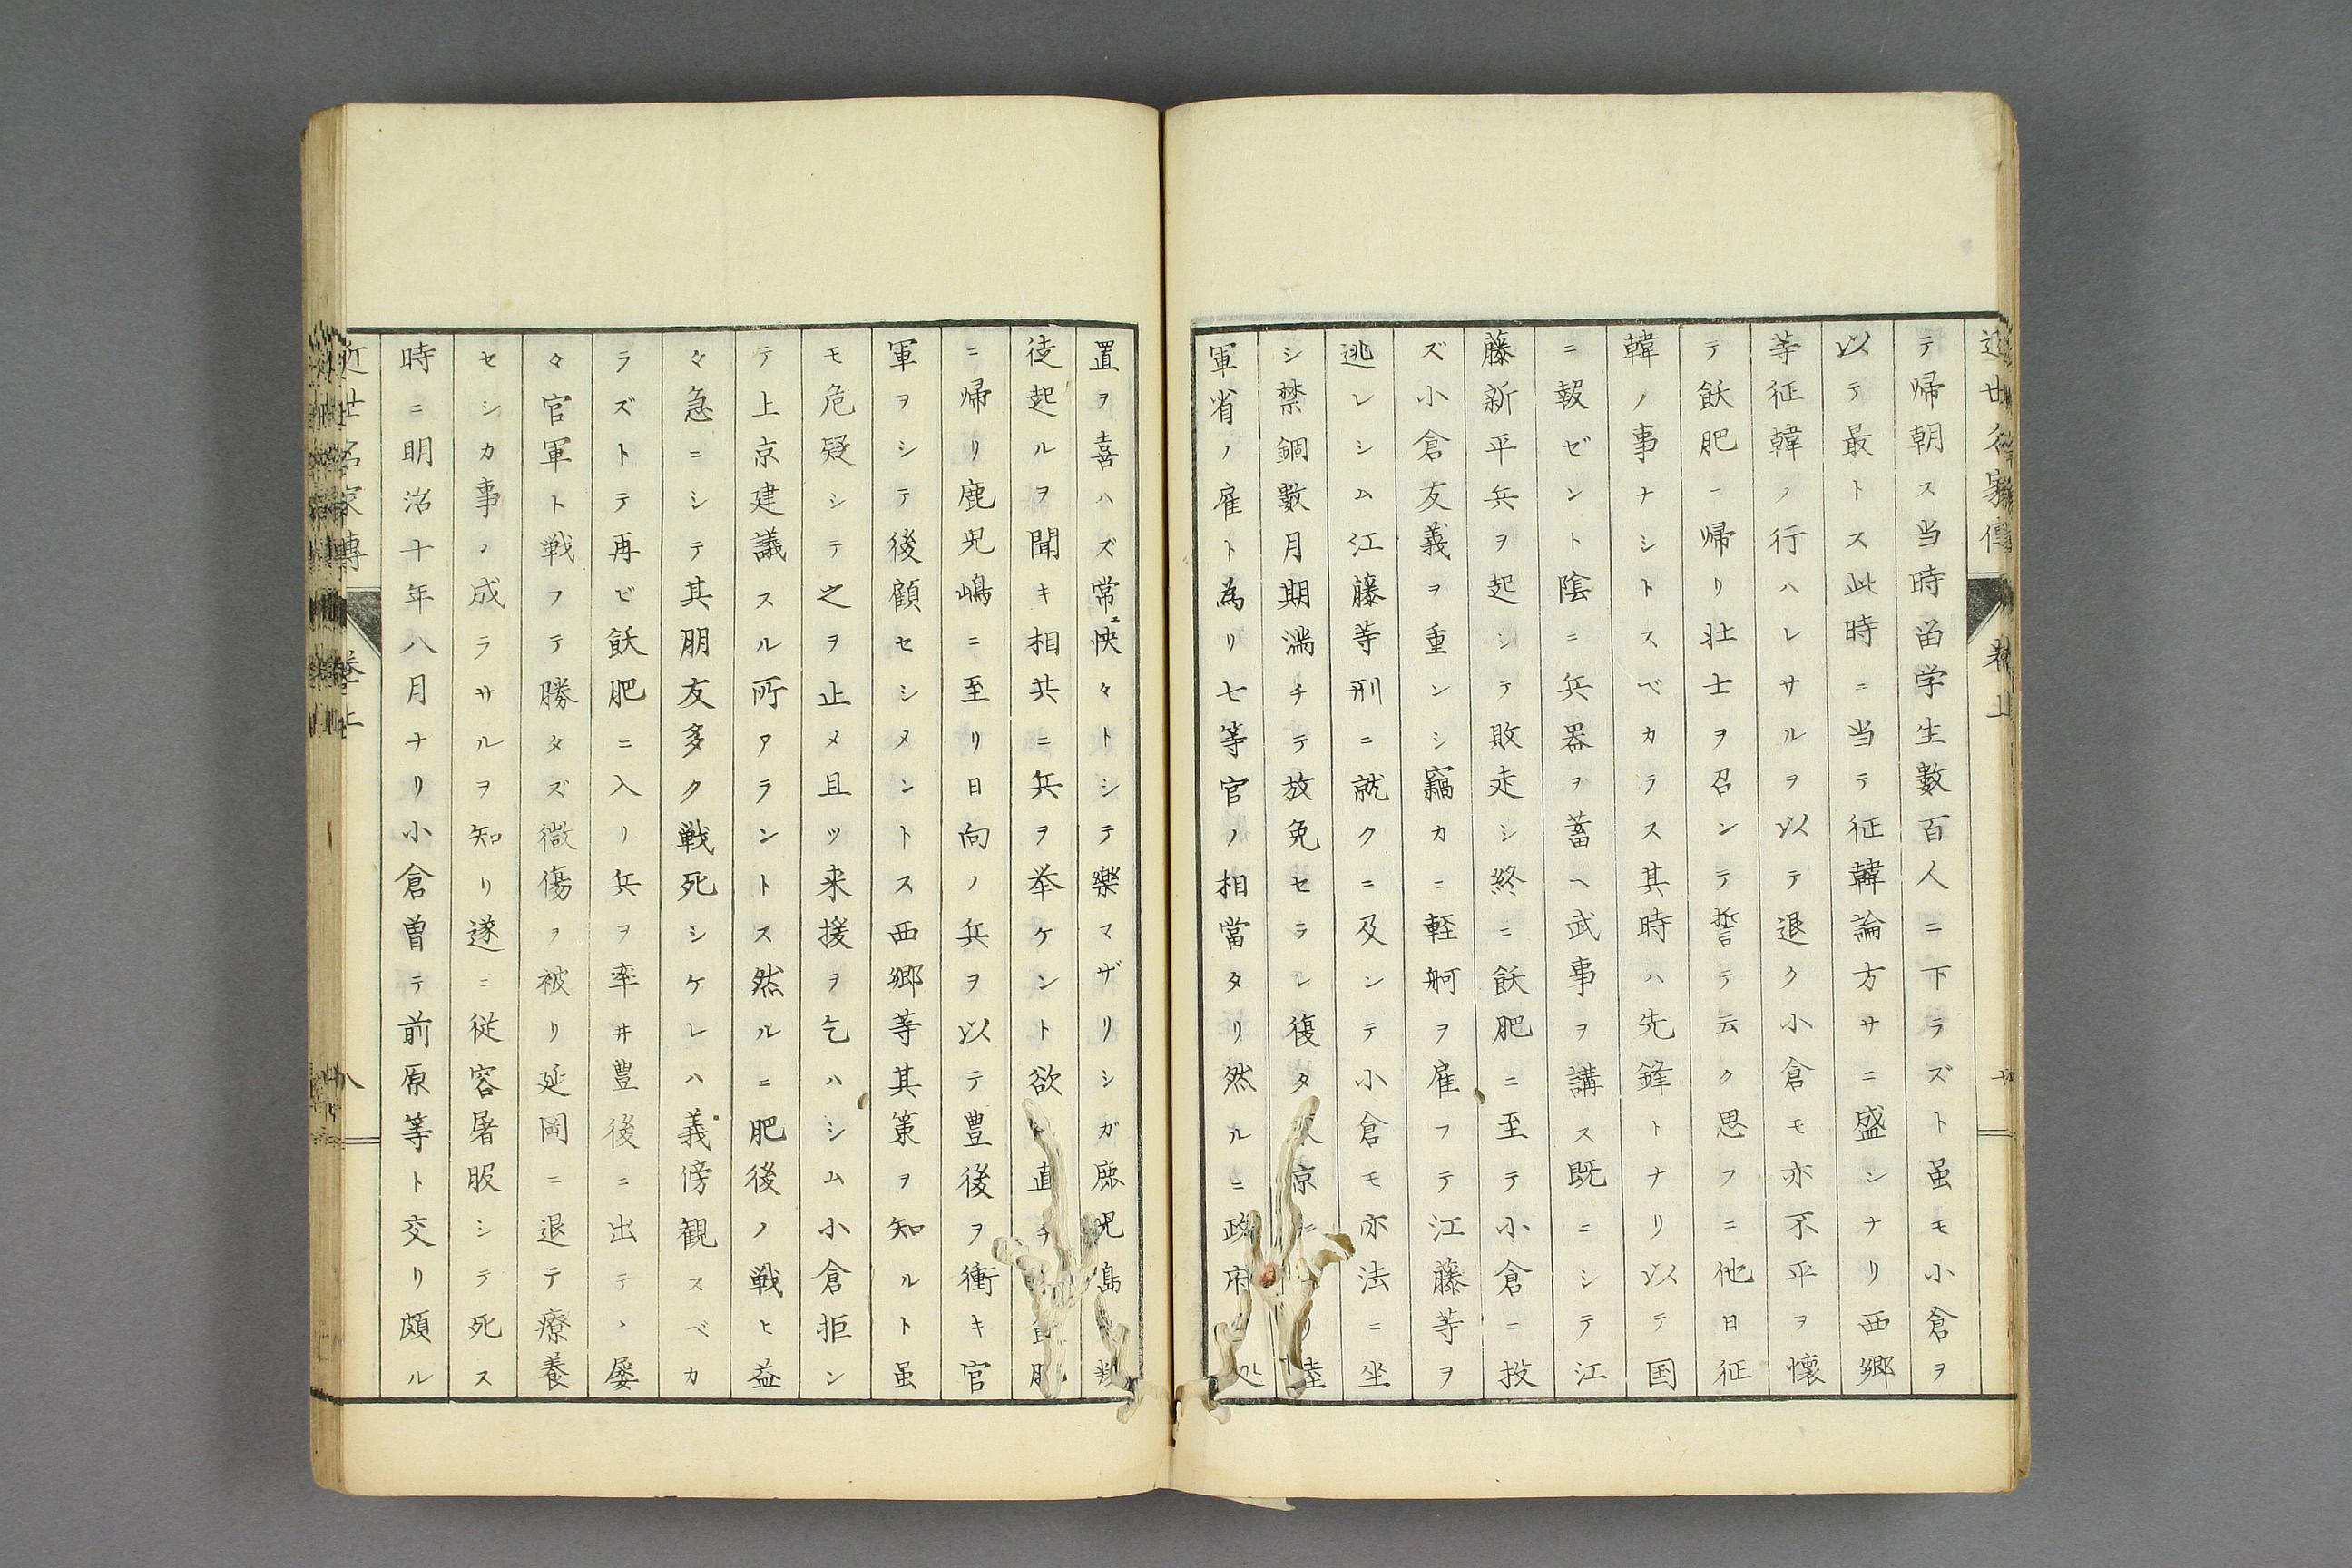 テ帰朝ス当時留学生數百人ニ下ラズト虽モ小倉ヲ
以テ最トス此時ニ当テ征韓論方サニ盛ンナリ西郷
等征韓ノ行ハレサルヲ以テ退ク小倉モ亦不平ヲ懐
テ飫肥ニ帰リ壮士ヲ召ンテ誓テ云ク思フニ他日征
韓ノ事ナシトスベカラス其時ハ先鋒トナリ以テ国
ニ報ゼント陰ニ兵器ヲ蓄ヘ武事ヲ講ス既ニシテ江
藤新平兵ヲ起シテ敗走シ終ニ飫肥ニ至テ小倉ニ投
ズ小倉友義ヲ重ンシ竊カニ軽舸ヲ雇フテ江藤等ヲ
逃レシム江藤等刑ニ就クニ及ンテ小倉モ亦法ニ坐
シ禁錮數月期満チテ放免セラレ復タ京ニ陸
軍省ノ雇ト為リ七等官ノ相當タリ然ルニ政府処
置ヲ喜ハズ常ニ怏々トシテ樂マザリシガ鹿児島
徒起ルヲ聞キ相共ニ兵ヲ挙ケント欲直チ肥
ニ帰リ鹿児嶋ニ至リ日向ノ兵ヲ以テ豊後ヲ衝キ官
軍ヲシテ後顧セシメントス西郷等其策ヲ知ルト虽
モ危疑シテ之ヲ止メ且ツ来援ヲ乞ハシム小倉拒ン
テ上京建議スル所アラントス然ルニ肥後ノ戦ヒ益
々急ニシテ其朋友多ク戦死シケレハ義傍観スベカ
ラズトテ再ビ飫肥ニ入リ兵ヲ率井豊後ニ出テヽ屡
々官軍ト戦フテ勝タズ微傷ヲ被リ延岡ニ退テ療養
セシカ事ノ成ラサルヲ知リ遂ニ従容屠服シテ死ス
時ニ明治十年八月ナリ小倉曽テ前原等ト交リ頗ル
近世名家傳 巻上 八